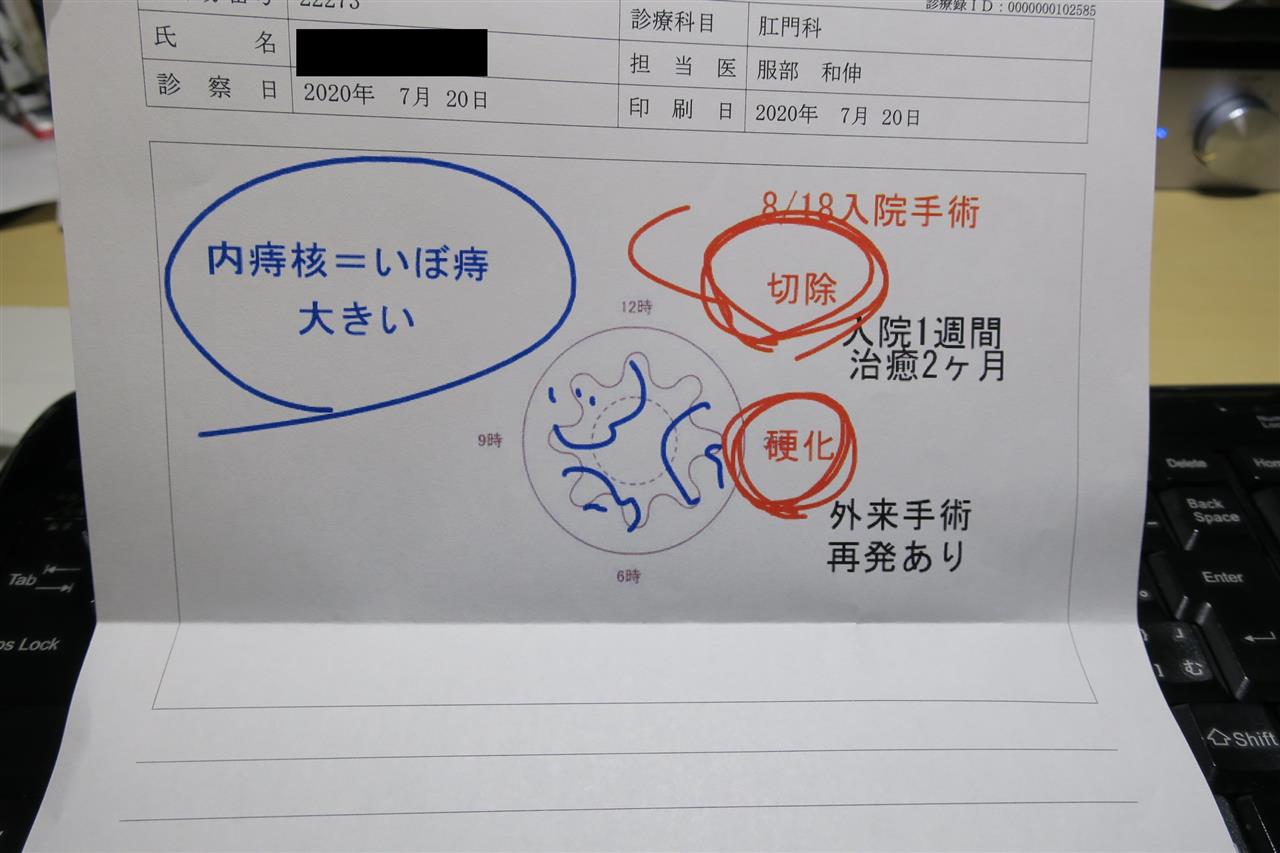 22273
診療録ID：0000000102585
氏　名
診療科目
肛門科
担当医
服部　和伸
診察日
2020年　7月 20日
印刷日
2020年　7月 20日
内痔核＝いぼ痔
大きい
8/18入院手術
切除
入院1週間
治癒2ヶ月
12時
9時
硬化
外来手術
再発あり
6時
Tab
ps Lock
Delete
Back
Space
Enter
む
Shift